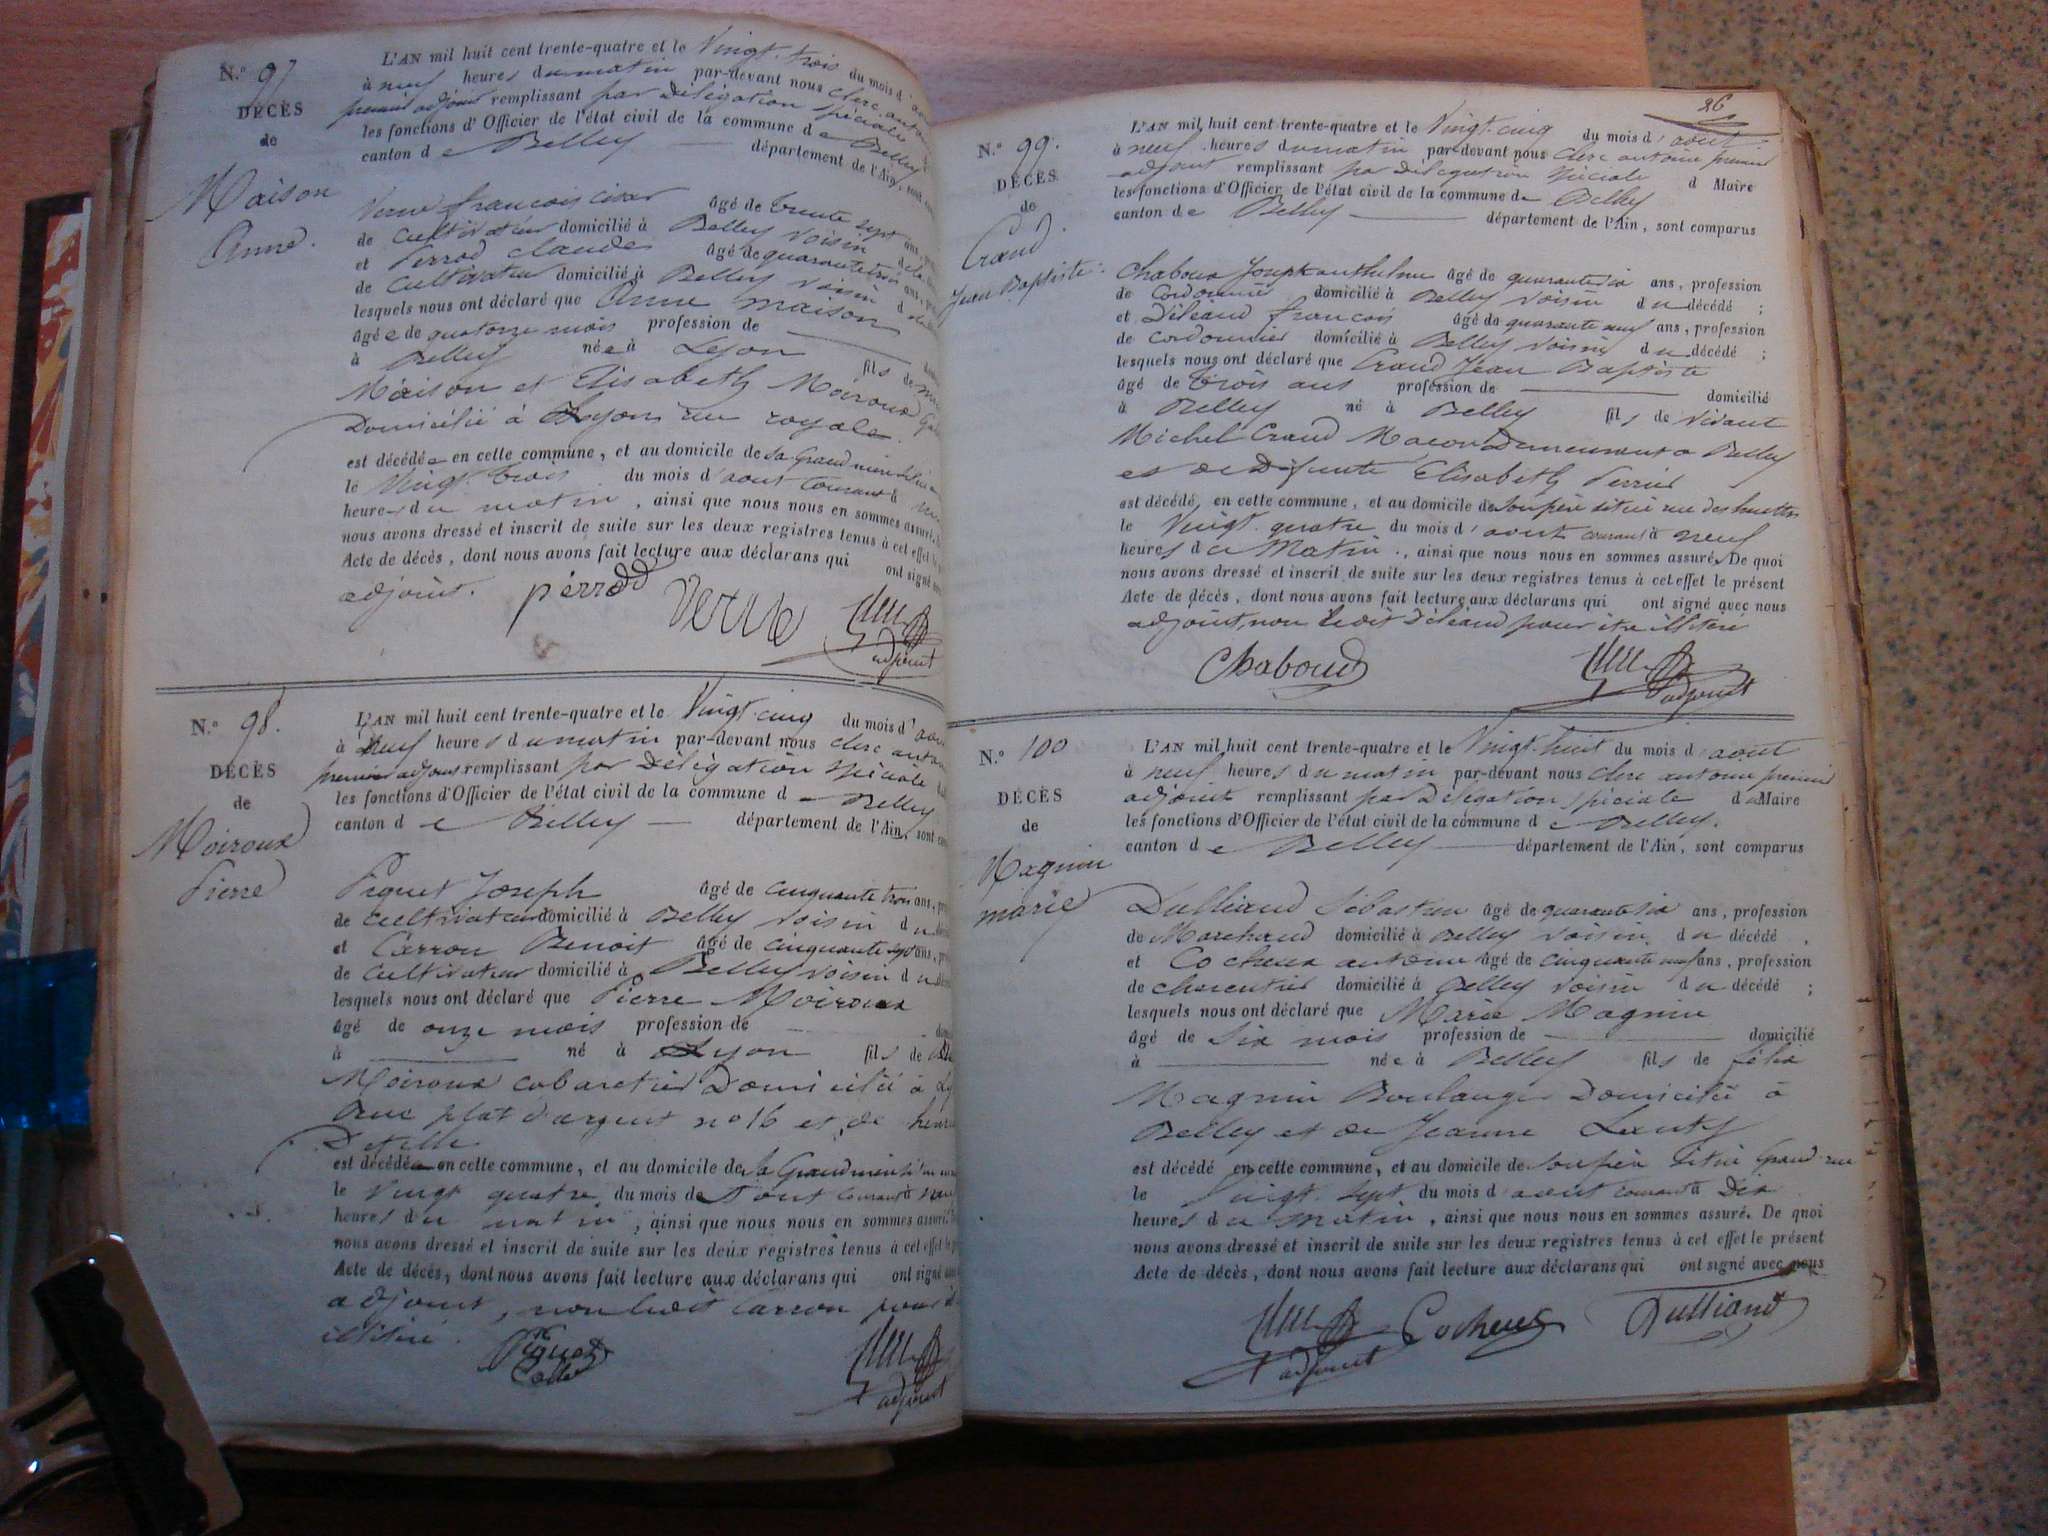 N.° 97
DÉCÈS
de
Maison
Anne.
L'AN mil huit cent trente-quatre et le Vingt trois du mois d'
à neuf heures du matin par-devant nous clerc
premier adjoint remplissant par Délégation Spéciale
les fonctions d'Officier de l'état civil de la commune de Belley
canton de Belley département de l'Ain,
Verne françois césar âgé de trente sept ans,
de cultivateur domicilié à Belley voisin
et Perrod claude âgé de quarante trois ans,
de cultivateur domicilié à Belley voisin
lesquels nous ont déclaré que Anne Maison
âgée de quatorze mois profession de
à Belley née à Lyon fils de
Maison et Elisabeth Moiroux
Domicilié à Lyon rue royale.
est décédée en cette commune, et au domicile de sa Grand mère
le Vingt trois du mois d'aout courant à
heures du matin, ainsi que nous nous en sommes assuré.
nous avons dressé et inscrit de suite sur les deux registres tenus à cet effet
Acte de décès, dont nous avons fait lecture aux déclarans qui ont signé
adjoint. pérrod Verne
adjoint
N.° 98.
DÉCÈS
de
Moiroux
Pierre
L'AN mil huit cent trente-quatre et le Vingt-cinq du mois d'
à neuf heures du matin par-devant nous clerc
premier adjoint remplissant par Délégation Spéciale
les fonctions d'Officier de l'état civil de la commune de Belley
canton de Belley département de l'Ain,
Piquet Joseph âgé de cinquante trois ans,
de cultivateur domicilié à Belley voisin du
et Carron Benoit âgé de cinquante sept ans,
de cultivateur domicilié à Belley voisin du
lesquels nous ont déclaré que Pierre Moiroux
âgé de onze mois profession de
à né à Lyon fils de
Moiroux cabaretier Domicilié à
Rue plat d'argent n° 16 et de
est décédé en cette commune, et au domicile de sa Grand mère
le vingt quatre du mois de aout courant à
heures du matin, ainsi que nous nous en sommes assuré.
nous avons dressé et inscrit de suite sur les deux registres tenus à cet effet
Acte de décès, dont nous avons fait lecture aux déclarans qui ont signé
adjoint, non ledit Carron pour
illitéré. Piquet
adjoint
26
N.° 99.
DÉCÈS
de
Craud
Jean Baptiste.
L'AN mil huit cent trente-quatre et le Vingt-cinq du mois d'aout
à neuf heures du matin par-devant nous clerc antoine premier
adjoint remplissant par Délégation Spéciale d Maire
les fonctions d'Officier de l'état civil de la commune de Belley
canton de Belley département de l'Ain, sont comparus
Chaboud Joseph anthelme âgé de quarante six ans, profession
de Cordonnier domicilié à Belley voisin du décédé ;
et Déléaud françois âgé de quarante neuf ans, profession
de cordonnier domicilié à Belley voisin du décédé ;
lesquels nous ont déclaré que Craud Jean Baptiste
âgé de trois ans profession de domicilié
à Belley né à Belley fils de vivant
Michel Craud Macon Demeurant a Belley
et de Défunte Elisabeth Perrier
est décédé en cette commune, et au domicile de son père situé rue des
le Vingt quatre du mois d'aout courant à neuf
heures du Matin, ainsi que nous nous en sommes assuré. De quoi
nous avons dressé et inscrit de suite sur les deux registres tenus à cet effet le présent
Acte de décès, dont nous avons fait lecture aux déclarans qui ont signé avec nous
adjoint, non ledit Déléaud pour etre illiteré
Chaboud
adjoint
N.° 100
DÉCÈS
de
Magnin
marie
L'AN mil huit cent trente-quatre et le Vingt-huit du mois d aout
à neuf heures du matin par-devant nous clerc antoine premier
adjoint remplissant par Délégation spéciale du Maire
les fonctions d'Officier de l'état civil de la commune de Belley.
canton de Belley département de l'Ain, sont comparus
Dulliand Sébastien âgé de quarante six ans, profession
de Marchand domicilié à Belley voisin du décédé ,
et Cocheux antoine âgé de cinquante neuf ans, profession
de charcutier domicilié à Belley voisin du décédé ;
lesquels nous ont déclaré que Marie Magnin
âgé de Six mois profession de domicilié
à née à Belley fils de félix
Magnin Boulanger Domicilié à
Belley et de Jeanne
est décédé en cette commune, et au domicile de son père situé Grand-rue
le Vingt sept du mois d aout courant à Dix
heures du matin, ainsi que nous nous en sommes assuré. De quoi
nous avons dressé et inscrit de suite sur les deux registres tenus à cet effet le présent
Acte de décès, dont nous avons fait lecture aux déclarans qui ont signé avec nous
adjoint Cocheux Dulliand